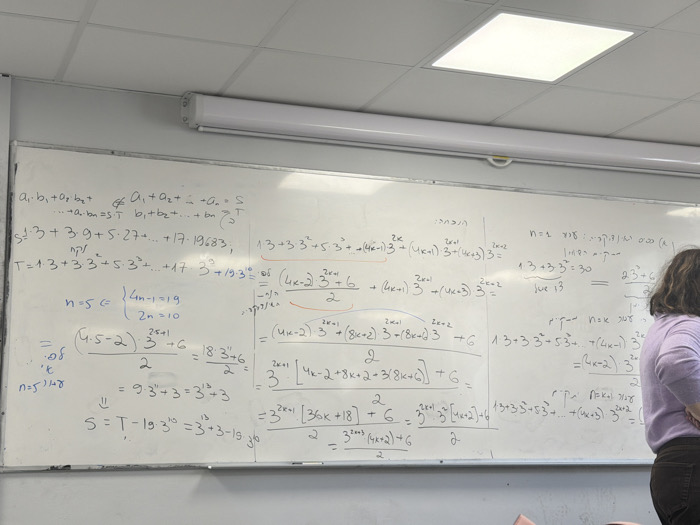 a₁·b₁+a₂·b₂+ ⇍ a₁+a₂+...+aₙ=S
...+aₙ·bₙ=S·T b₁+b₂+...+bₙ=T
S=1·3+3·9+5·27+...+17·19683
T=1·3+3·3²+5·3³+...+17·3⁹+19·3¹⁰
n=5 ⇐ { 4n-1=19
2n=10
= (4·5-2)·3^(2·5+1)+6 / 2 = 18·3¹¹+6 / 2 =
n=5
= 9·3¹¹+3=3¹³+3
⇓
S=T-19·3¹⁰=3¹³+3-19·3¹⁰
הוכחה:
1·3+3·3²+5·3³+...+(4k-1)3^(2k)+(4k+1)3^(2k+1)+(4k+3)3^(2k+2)=
= (4k-2)3^(2k+1)+6 / 2 +(4k+1)3^(2k+1)+(4k+3)3^(2k+2)=
= (4k-2)3^(2k+1)+(8k+2)3^(2k+1)+(8k+6)3^(2k+2)+6 / 2
= 3^(2k+1)·[4k-2+8k+2+3(8k+6)]+6 / 2 =
= 3^(2k+1)[36k+18]+6 / 2 = 3^(2k+1)·3²[4k+2]+6 / 2
= 3^(2k+3)(4k+2)+6 / 2
n=1
1·3+3·3²=30 = 2·3³+6
n=k
1·3+3·3²+5·3³...+(4k-1)3
=(4k-2)3
n=k+1
1·3+3·3²+5·3³+...+(4k+3)·3^(2k+2)